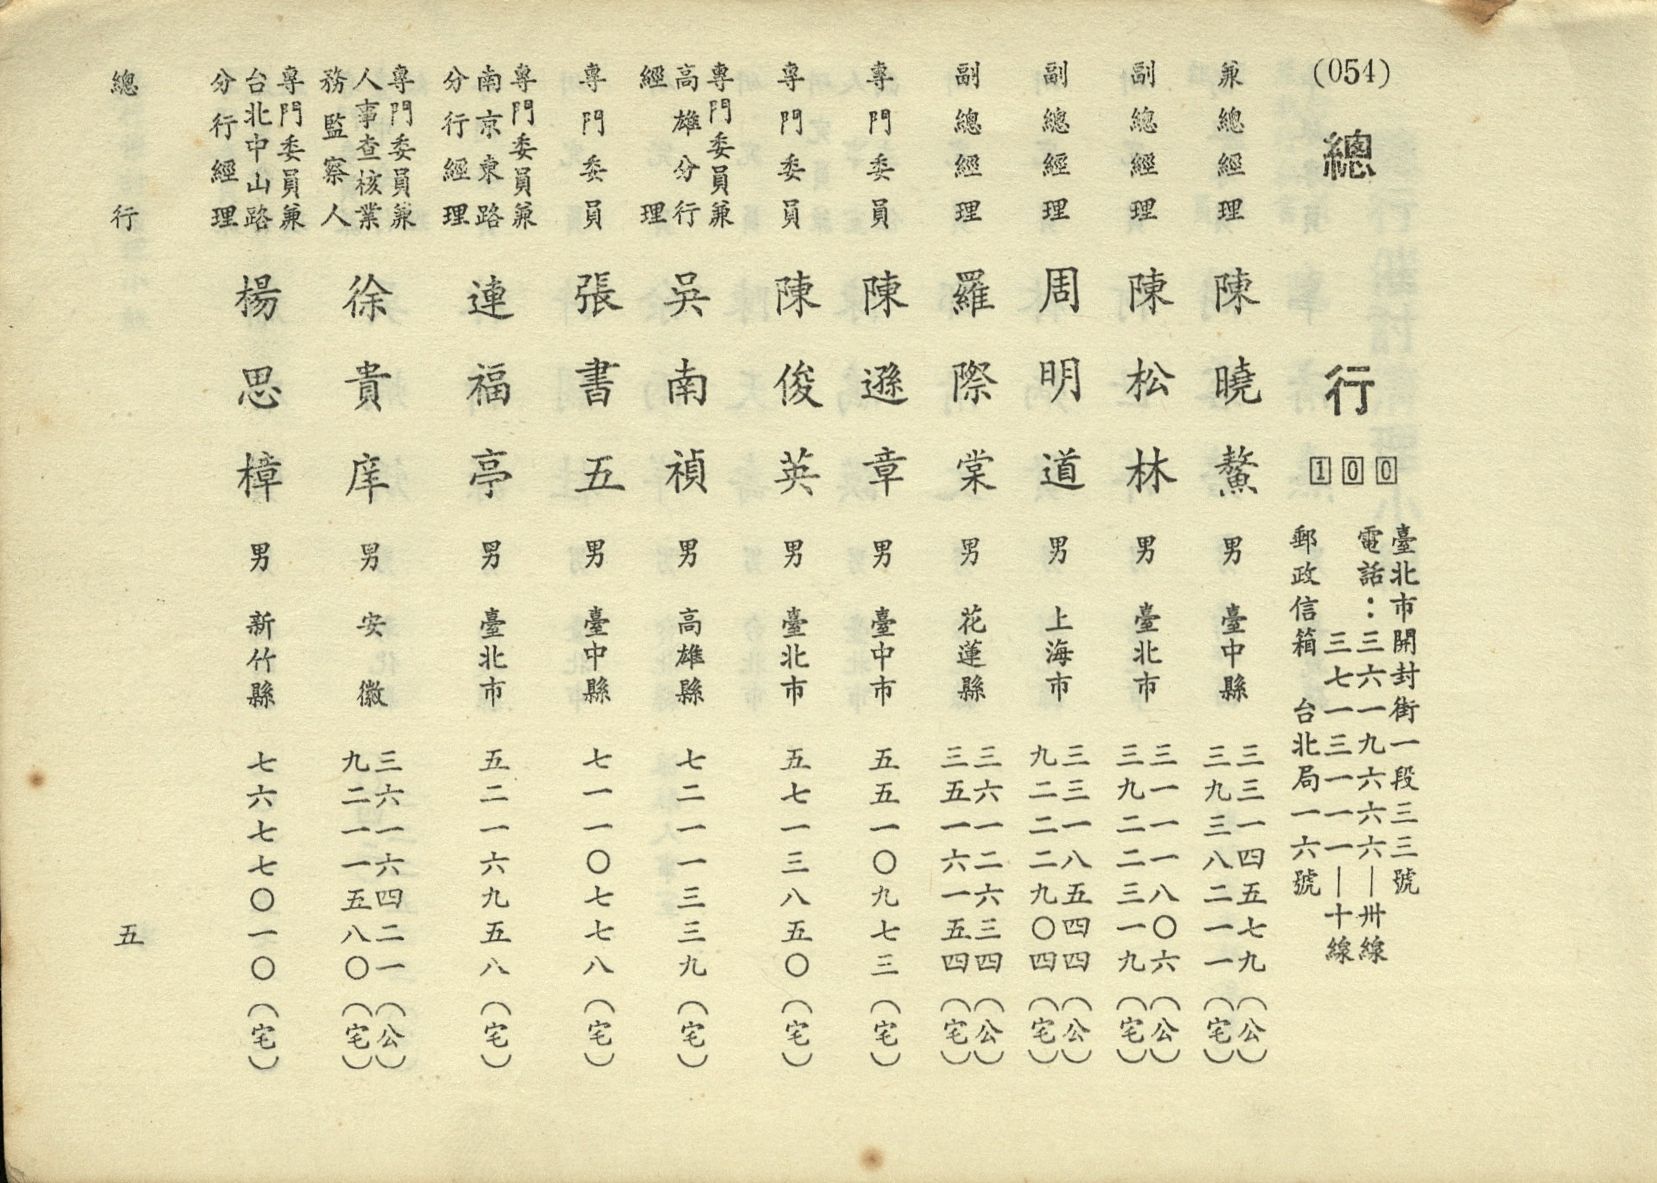 (054)
總行
100
臺北市開封街一段三三號
電話：三六一九六六六—卅線
三七一三一一一—十線
郵政信箱 台北局一六號
兼總經理 陳曉鰲 男 臺中縣 三三一四五七九(公)
三九三八二一一(宅)
副總經理 陳松林 男 臺北市 三一一一八〇六(公)
三九二二三一九(宅)
副總經理 周明道 男 上海市 三三一八五四四(公)
九二二二九〇四(宅)
副總經理 羅際棠 男 花蓮縣 三六一二六三四(公)
三五一六一五四(宅)
專門委員 陳遜章 男 臺中市 五五一〇九七三(宅)
專門委員 陳俊英 男 臺北市 五七一三八五〇(宅)
專門委員兼
高雄分行
經理 吳南禎 男 高雄縣 七二一一三三九(宅)
專門委員 張書五 男 臺中縣 七一一〇七七八(宅)
專門委員兼
南京東路
分行經理 連福亭 男 臺北市 五二一六九五八(宅)
專門委員兼
人事查核業
務監察人 徐貴庠 男 安徽 三六一六四二一(公)
九二一一五八〇(宅)
專門委員兼
台北中山路
分行經理 楊思樟 男 新竹縣 七六七七〇一〇(宅)
總行
五